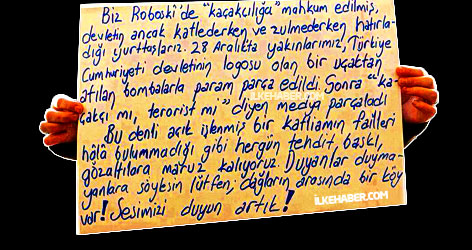 Biz Roboski'de "kaçakçılığa" mahkum edilmiş,
devletin ancak katlederken ve zulmederken hatırla-
dığı yurttaşlarız. 28 Aralıkta yakınlarımız, Türkiye
Cumhuriyeti devletinin logosu olan bir uçaktan
atılan bombalarla param parça edildi. Sonra "ka-
çakçı mı, terorist mi" diyen medya parçaladı
ILKEHABER.COM
Bu denli açık işlenmiş bir katliamın failleri
hâlâ bulunmadığı gibi hergün tehdit, baskı,
gözaltılara maruz kalıyoruz. Duyanlar duyma-
yanlara söylesin lütfen; dağların arasında bir köy
var! Sesimizi duyun artık!
ILKEHABER.COM